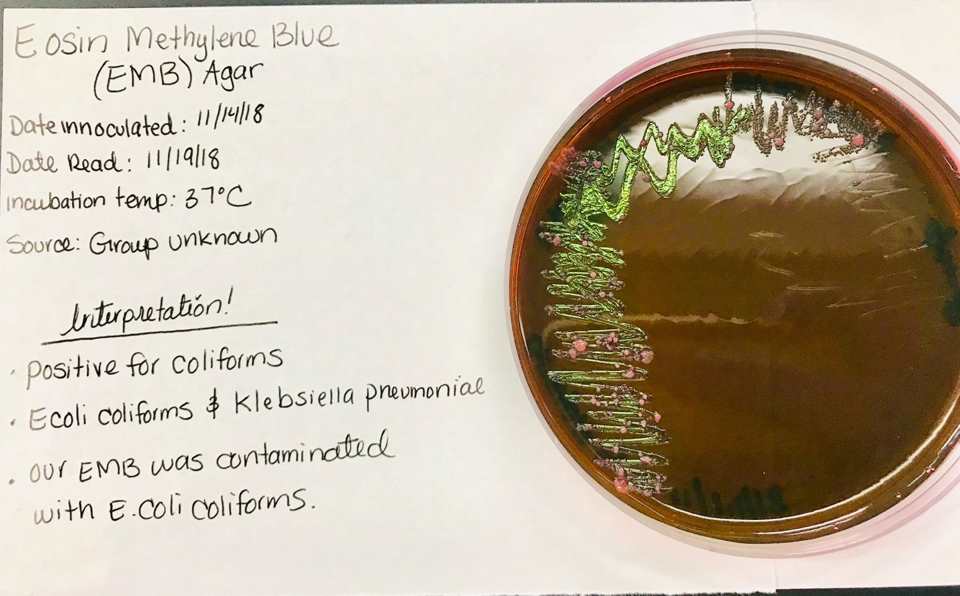 Eosin Methylene Blue
(EMB) Agar
Date innoculated: 11/14/18
Date Read: 11/19/18
Incubation temp: 37°C
Source: Group unknown
Interpretation!
· positive for coliforms
· Ecoli coliforms & Klebsiella pneumoniae
· our EMB was contaminated
with E.coli coliforms.